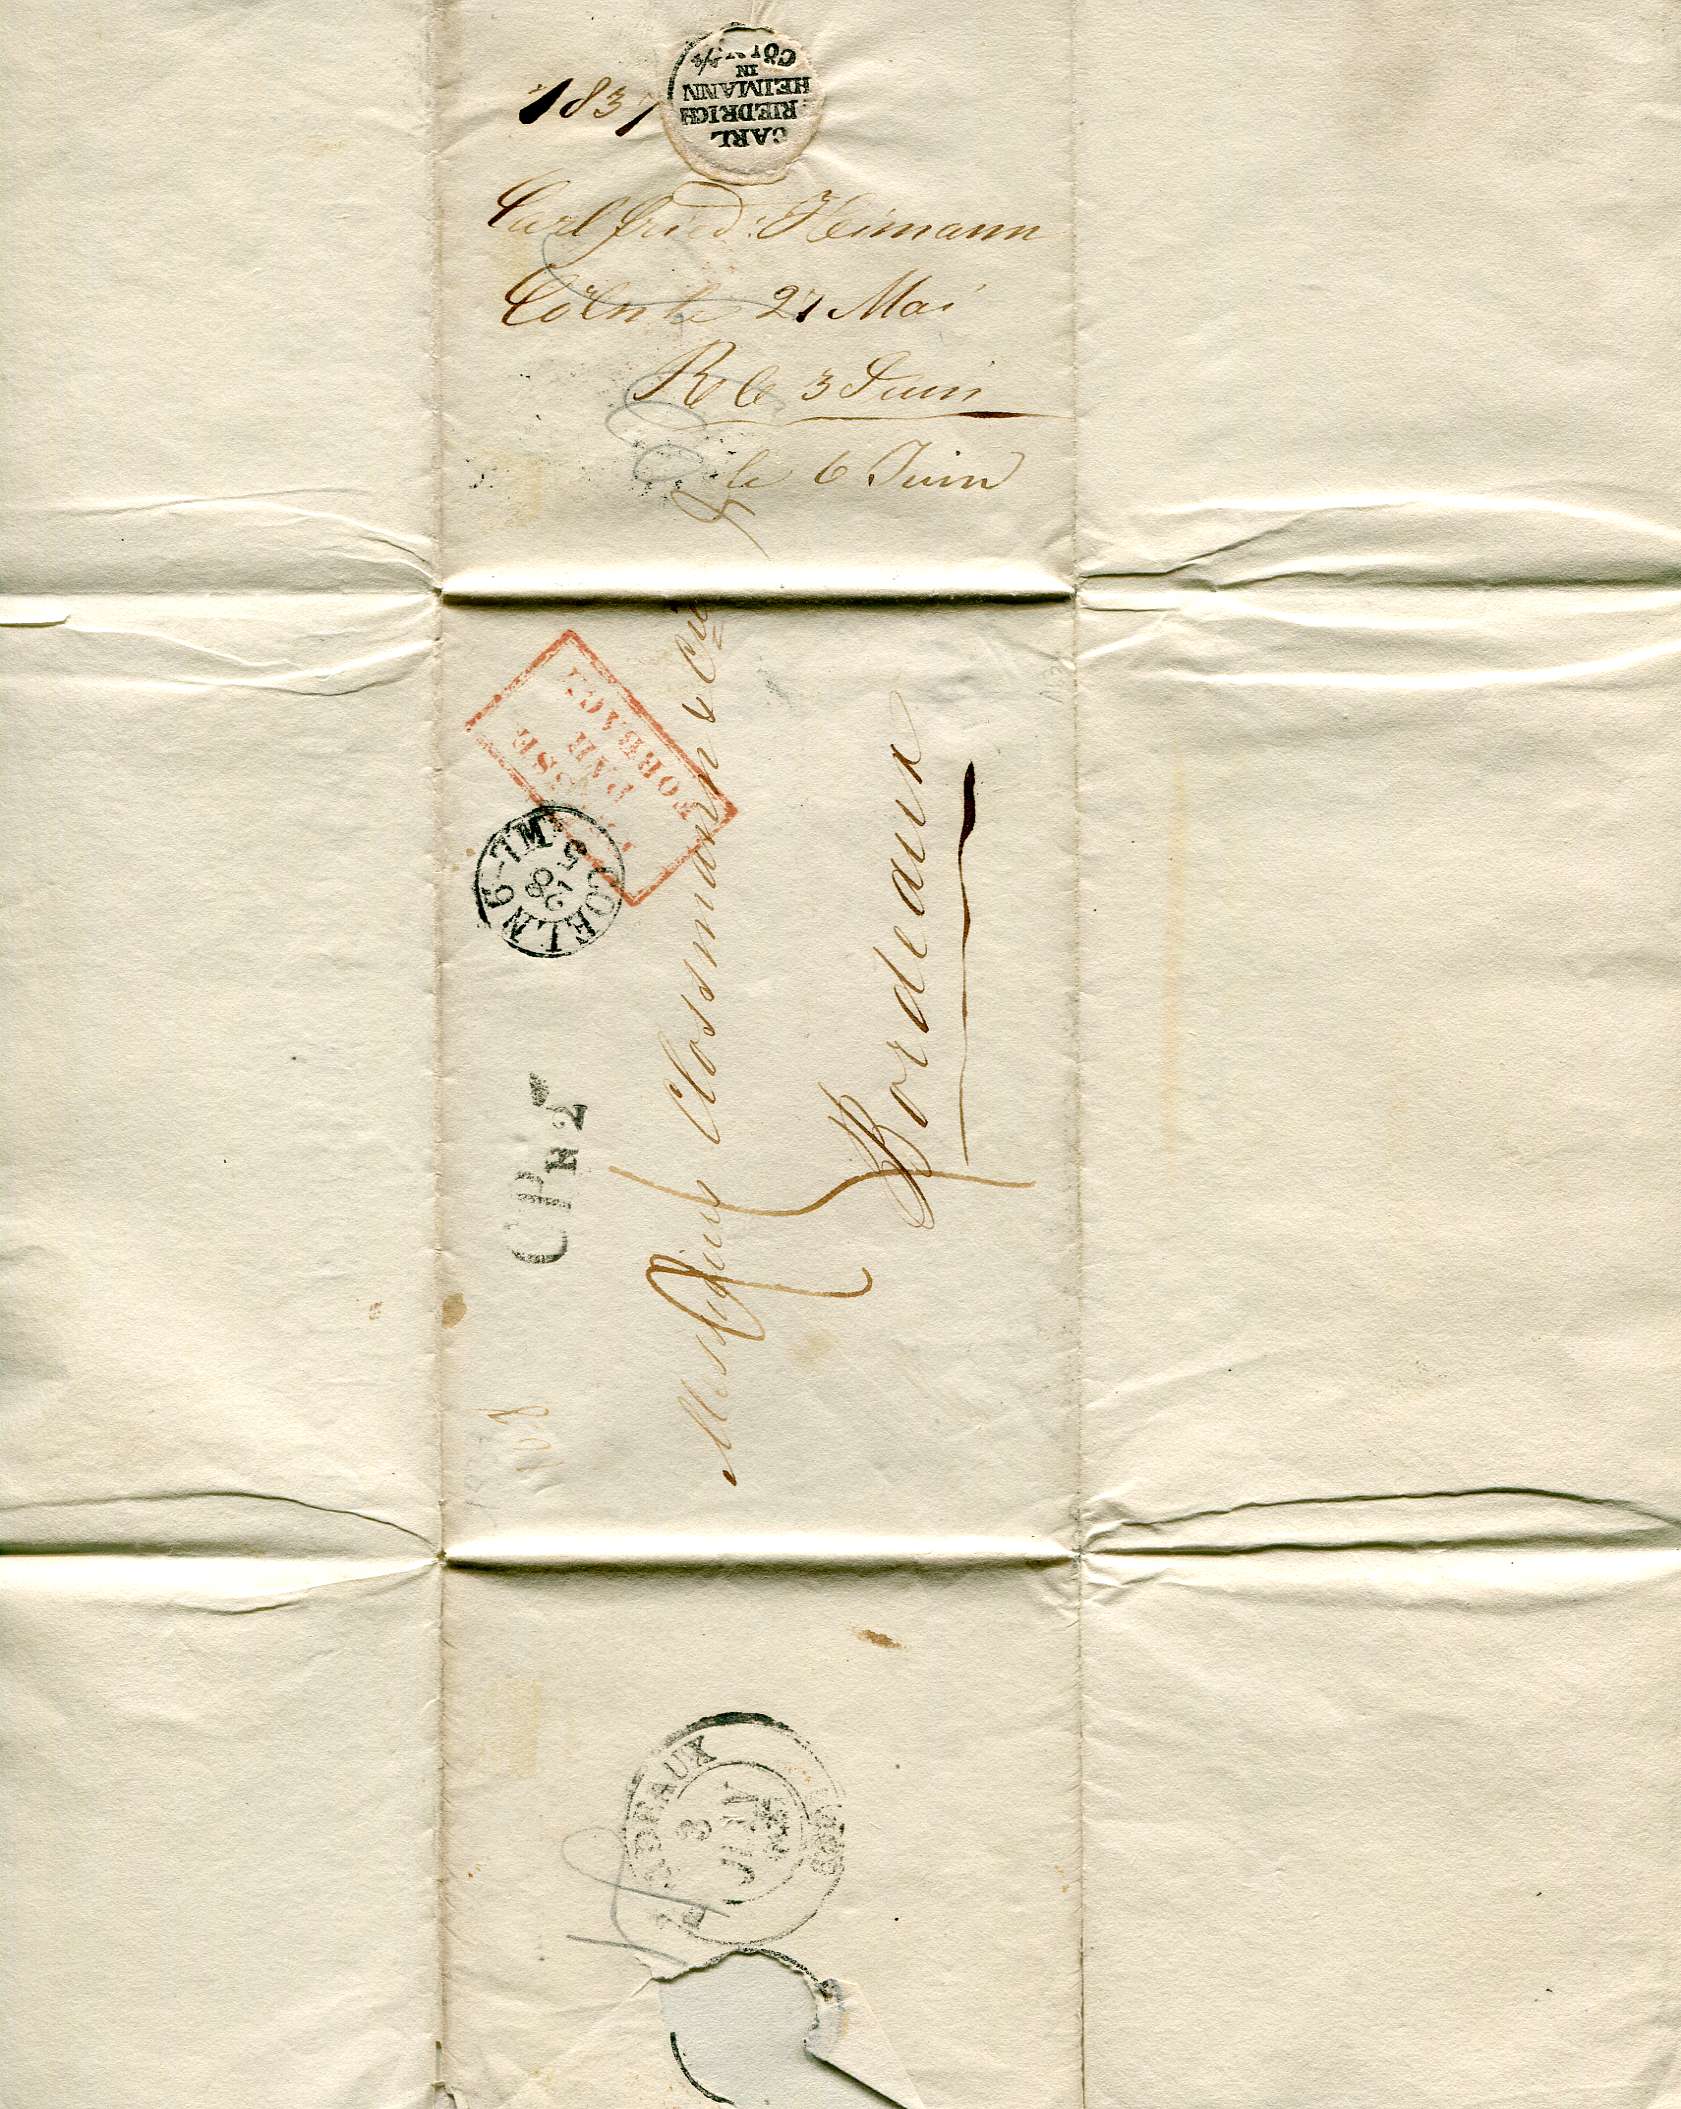 1837
CARL
FRIEDRICH
HEIMANN
IN
Carl fried: Heimann
Cöln le 27 Mai
R le 3 Juin
le 6 Juin
PRUSSE
PAR
FORBACH
COELN 6-7
28
5
C.P.R.2
Messieurs Clossmann & Cie
Bordeaux
BORDEAUX
3
JUIN